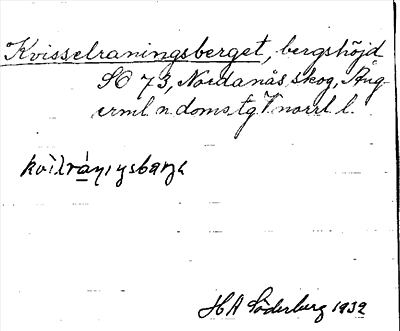 Kvisselraningsberget, bergshöjd
SO 73, Nordanås skog, Ång-
erml. n. doms. tg. V. norrl. l.
HA Söderberg 1932